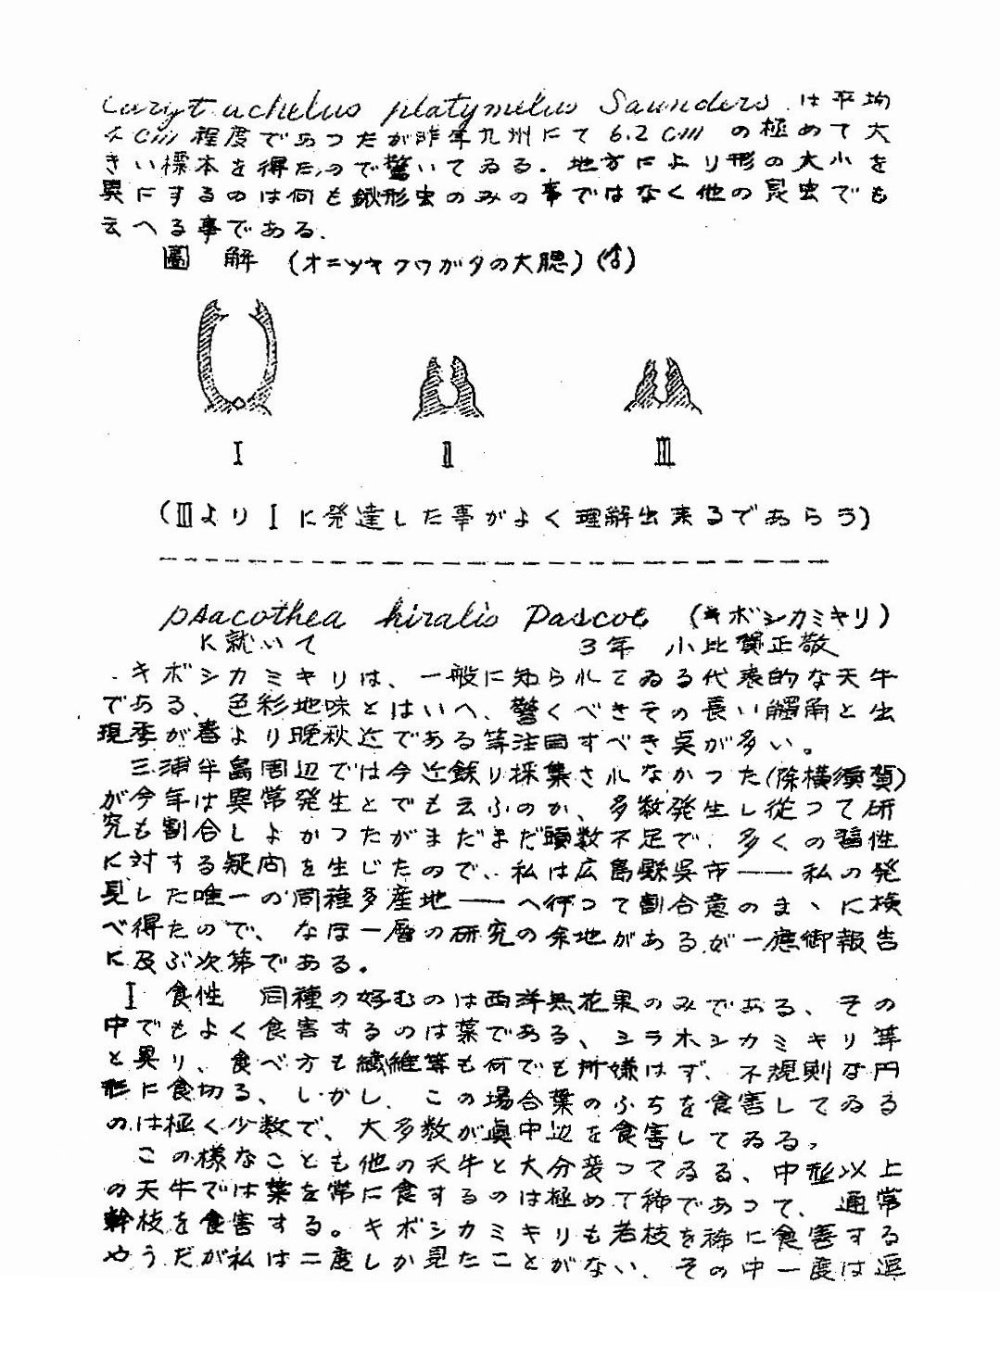 Eurytrachelus platymelus Saunders は平均
4cm程度であつたが昨年九州にて6.2cmの極めて大
きい標本を得たので驚いてゐる。地方により形の大小を
異にするのは何も鍬形虫のみの事ではなく他の昆虫でも
云へる事である。
圖 解 (オニツヤクワガタの大腮)(♂)
Ⅰ Ⅱ Ⅲ
(ⅢよりⅠに発達した事がよく理解出来るであらう)
psacothea hiralis Pascoe (キボシカミキリ)
に就いて 3年 小比賀正敬
キボシカミキリは、一般に知られてゐる代表的な天牛
である、色彩地味とはいへ、驚くべきその長い觸角と出
現季が春より晩秋迄である等注目すべき点が多い。
三浦半島周辺では今迄余り採集されなかつた(除横須賀)
が今年は異常発生とでも云ふのか、多数発生し従つて研
究も割合しよかつたがまだまだ頭数不足で、多くの習性
に対する疑問を生じたので、私は広島縣呉市――私の発
見した唯一の同種多産地――へ行つて割合意のまゝに検
べ得たので、なほ一層の研究の余地があるが一應御報告
に及ぶ次第である。
Ⅰ 食性 同種の好むのは西洋無花果のみである、その
中でもよく食害するのは葉である、シラホシカミキリ等
と異り、食べ方も繊維等も何でも所嫌はず、不規則な円
形に食切る、しかし、この場合葉のふちを食害してゐる
のは極く少数で、大多数が眞中辺を食害してゐる、
この様なことも他の天牛と大分変つてゐる、中型以上
の天牛では葉を常に食するのは極めて稀であつて、通常
幹枝を食害する。キボシカミキリも若枝を稀に食害する
やうだが私は二度しか見たことがない、その中一度は逗